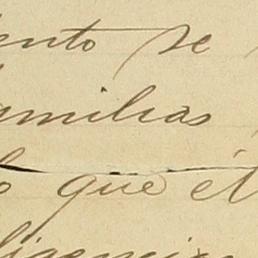 ento se
amilias
o que él
ligencia